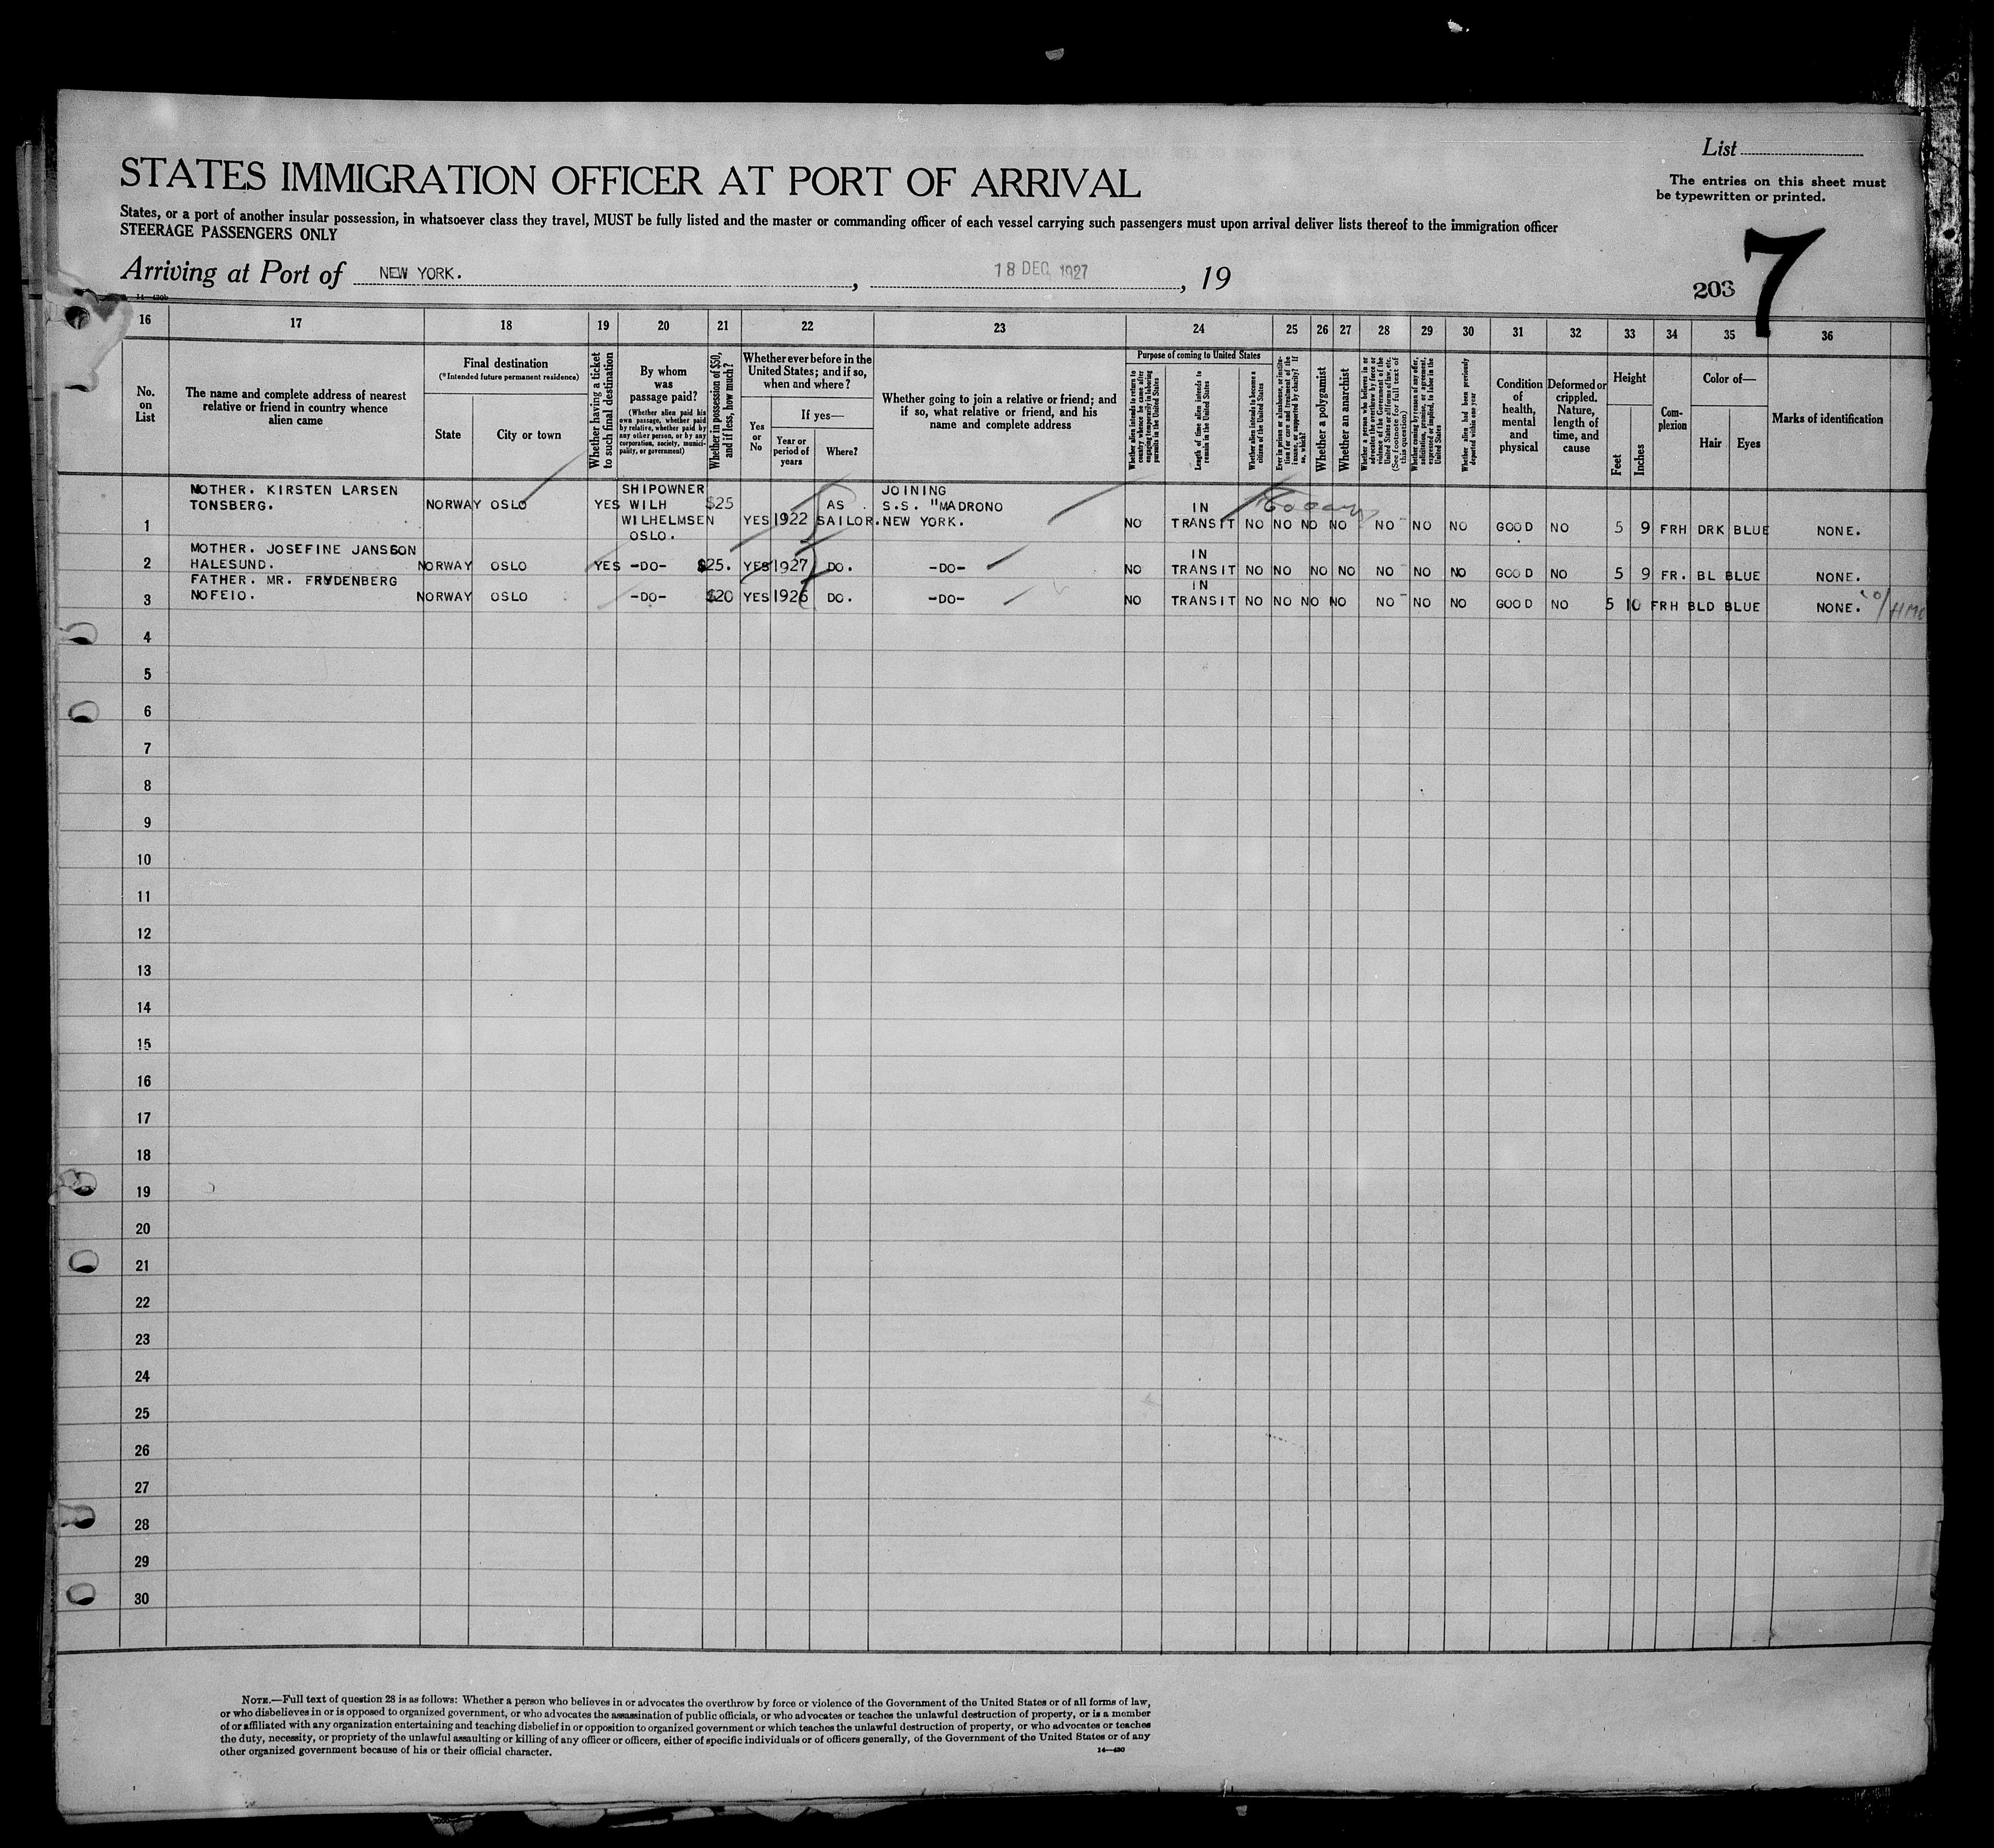 List
The entries on this sheet must
be typewritten or printed.
STATES IMMIGRATION OFFICER AT PORT OF ARRIVAL
States, or a port of another insular possession, in whatsoever class they travel, MUST be fully listed and the master or commanding officer of each vessel carrying such passengers must upon arrival deliver lists thereof to the immigration officer
STEERAGE PASSENGERS ONLY
Arriving at Port of NEW YORK. , 18 DEC 1927 , 19
203 7
14—430b
16 17 18 19 20 21 22 23 24 25 26 27 28 29 30 31 32 33 34 35 36
No. on List
The name and complete address of nearest
relative or friend in country whence
alien came
Final destination
(*Intended future permanent residence)
State
City or town
Whether having a ticket
to such final destination
By whom
was
passage paid?
(Whether alien paid his
own passage, whether paid
by relative, whether paid by
any other person, or by any
corporation, society, munici-
pality, or government)
Whether in possession of $50,
and if less, how much?
Whether ever before in the
United States; and if so,
when and where?
Yes or No
If yes—
Year or
period of
years
Where?
Whether going to join a relative or friend; and
if so, what relative or friend, and his
name and complete address
Purpose of coming to United States
Whether alien intends to return to
country whence he came after
engaging temporarily in laboring
pursuits in the United States
Length of time alien intends to
remain in the United States
Whether alien intends to become a
citizen of the United States
Ever in prison or almshouse, or institu-
tion for care and treatment of the
insane, or supported by charity? If
so, which?
Whether a polygamist
Whether an anarchist
Whether a person who believes in or
advocates the overthrow by force or
violence of the Government of the
United States or all forms of law, etc.
(See footnote for full text of
this question)
Whether coming by reason of any offer,
solicitation, promise, or agreement,
expressed or implied, to labor in the
United States
Whether alien had been previously
deported within one year
Condition
of
health,
mental
and
physical
Deformed or
crippled.
Nature,
length of
time, and
cause
Height
Feet
Inches
Com-
plexion
Color of—
Hair
Eyes
Marks of identification
MOTHER. KIRSTEN LARSEN
TONSBERG.
1 NORWAY OSLO YES SHIPOWNER
WILH
WILHELMSEN
OSLO.
$25 YES 1922 AS
SAILOR. JOINING
S.S. "MADRONO
NEW YORK. NO IN
TRANSIT NO NO NO NO NO NO NO GOOD NO 5 9 FRH DRK BLUE NONE.
MOTHER. JOSEFINE JANSSON
2 HALESUND. NORWAY OSLO YES -DO- $25. YES 1927 DO. -DO- NO IN
TRANSIT NO NO NO NO NO NO NO GOOD NO 5 9 FR. BL BLUE NONE.
FATHER. MR. FRYDENBERG
3 NOFEIO. NORWAY OSLO -DO- $20 YES 1926 DO. -DO- NO IN
TRANSIT NO NO NO NO NO NO NO GOOD NO 5 10 FRH BLD BLUE NONE.
4
5
6
7
8
9
10
11
12
13
14
15
16
17
18
19
20
21
22
23
24
25
26
27
28
29
30
NOTE.—Full text of question 28 is as follows: Whether a person who believes in or advocates the overthrow by force or violence of the Government of the United States or of all forms of law,
or who disbelieves in or is opposed to organized government, or who advocates the assassination of public officials, or who advocates or teaches the unlawful destruction of property, or is a member
of or affiliated with any organization entertaining and teaching disbelief in or opposition to organized government or which teaches the unlawful destruction of property, or who advocates or teaches
the duty, necessity, or propriety of the unlawful assaulting or killing of any officer or officers, either of specific individuals or of officers generally, of the Government of the United States or of any
other organized government because of his or their official character.
14—430